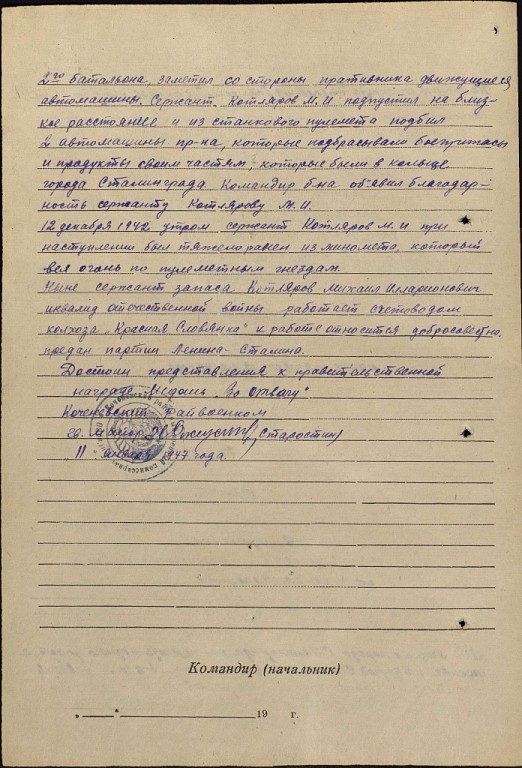 2го батальона, заметил со стороны пративника движущиеся
автомашины. Сержант Котляров М.И подпустил на близ-
кое расстояние и из станкового пулемета подбил
2 автомашины пр-ка, которые подбрасывали боеприпасы
и продукты своим частям, которые были в кольце
города Сталинграда. Командир б-на об'явил благодар-
ность сержанту Котлярову М.И.
12 декабря 1942 утром сержант Котляров М.И при
наступлении был тяжело ранен из миномета, который
вел огонь по пулеметным гнездам.
Ныне сержант запаса Котляров Михаил Илларионович
инвалид отечественной войны работает счетоводом
колхоза „Красная Словянка" к работе относится добросовестно,
предан партии Ленина-Сталина.
Достоин представления к правительственной
награде Медаль „За отвагу"
Коченевский Райвоенком
гв. майор Старостин
"11 января 1947 года
Командир (начальник)
19 г.